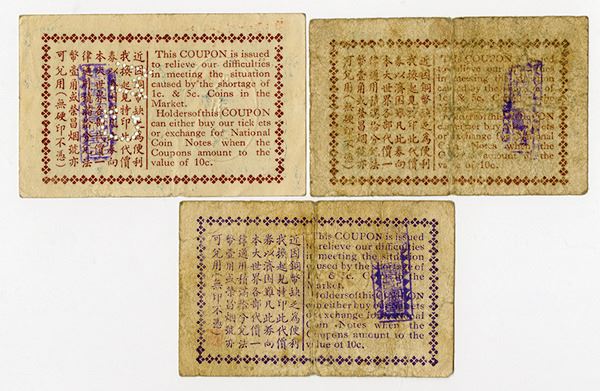 近因銅幣缺乏為便利
我換起見特印此代價
券以濟困難凡此券向
本大世界各部代價一
律通用積滿拾分兌法
幣壹角或榮昌烟號亦
可兌用(無硬印不憑)
This COUPON is issued
to relieve our difficulties
in meeting the situation
caused by the shortage of
1c. & 5c. Coins in the
Market.
Holders of this COUPON
can either buy our tick ets
or exchange for National
Coin Notes when the
Coupons amount to the
value of 10c.
近因銅幣缺乏為便利
我換起見特印此代價
券以濟困難凡此券向
本大世界各部代價一
律通用積滿拾分兌法
幣壹角或榮昌烟號亦
可兌用(無硬印不憑)
This COUPON is issued
to relieve our difficulties
in meeting the situation
caused by the shortage
1c. & 5c. Coins in the
Market.
Holders of this COUPON
can either buy our tickets
or exchange for National
Coin Notes when the
Coupons amount to the
value of 10c.
近因銅幣缺乏為便利
我換起見特印此代價
券以濟困難凡此券向
本大世界各部代價一
律通用積滿拾分兌法
幣壹角或榮昌烟號亦
可兌用(無印不憑)
This COUPON is issued
relieve our difficulties
in meeting the situation
caused by the shortage of
& 5c. Coins in the
Market.
Holders of this COUPON
can either buy our tickets
or exchange for National
Coin Notes when the
Coupons amount to the
value of 10c.